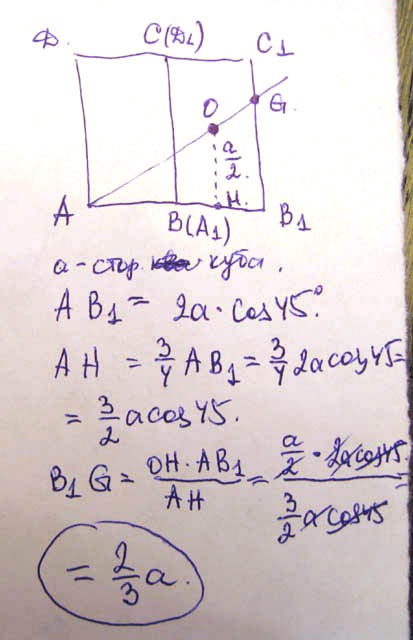 D. C(D₁) C₁
O G.
a/2
A H.
B(A₁) B₁
a - стор. куба.
AB₁ = 2a · cos 45°.
AH = 3/4 AB₁ = 3/4 2a cos 45 =
= 3/2 a cos 45.
B₁G = OH · AB₁ / AH = a/2 · 2a cos 45 / 3/2 a cos 45 =
= 2/3 a.